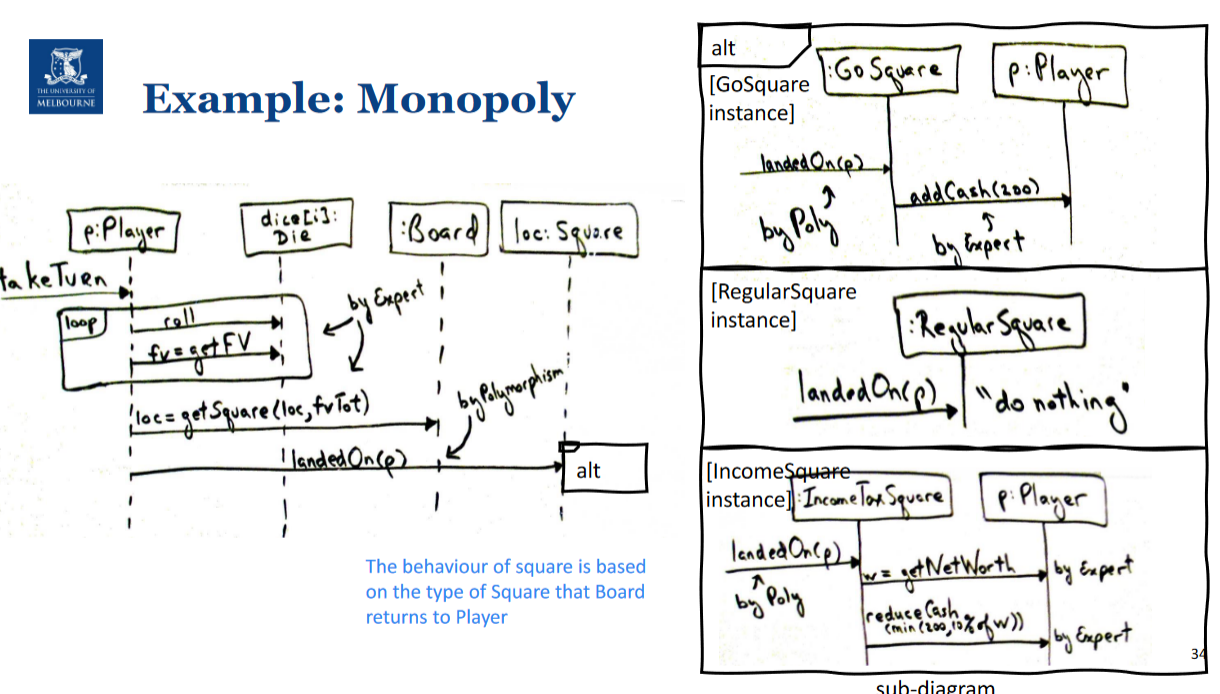 THE UNIVERSITY OF
MELBOURNE
Example: Monopoly
p:Player
dice[i]:
Die
:Board
loc: Square
takeTurn
loop
roll
fv=getFV
by Expert
loc=getSquare(loc,fvTot)
by Polymorphism
landedOn(p)
alt
The behaviour of square is based
on the type of Square that Board
returns to Player
alt
[GoSquare
instance]
:GoSquare
p:Player
landedOn(p)
addCash(200)
by Poly
by Expert
[RegularSquare
instance]
:RegularSquare
landedOn(p)
"do nothing"
[IncomeSquare
instance]
:IncomeTaxSquare
p:Player
landedOn(p)
w = getNetWorth
by Expert
by Poly
reduceCash
(min(200,10% of w))
by Expert
34
sub-diagram